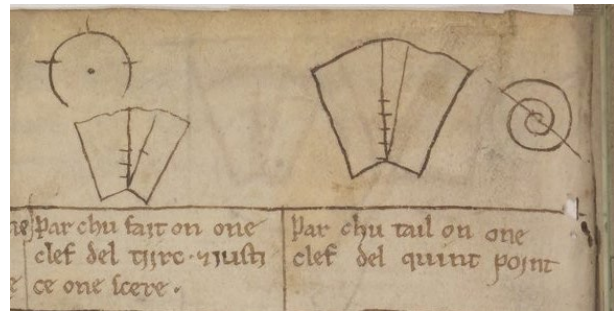 Par chu fait on one
clef del tijrc · ⁊ iusti
ce one scere ·
Par chu tail on one
clef del quint point